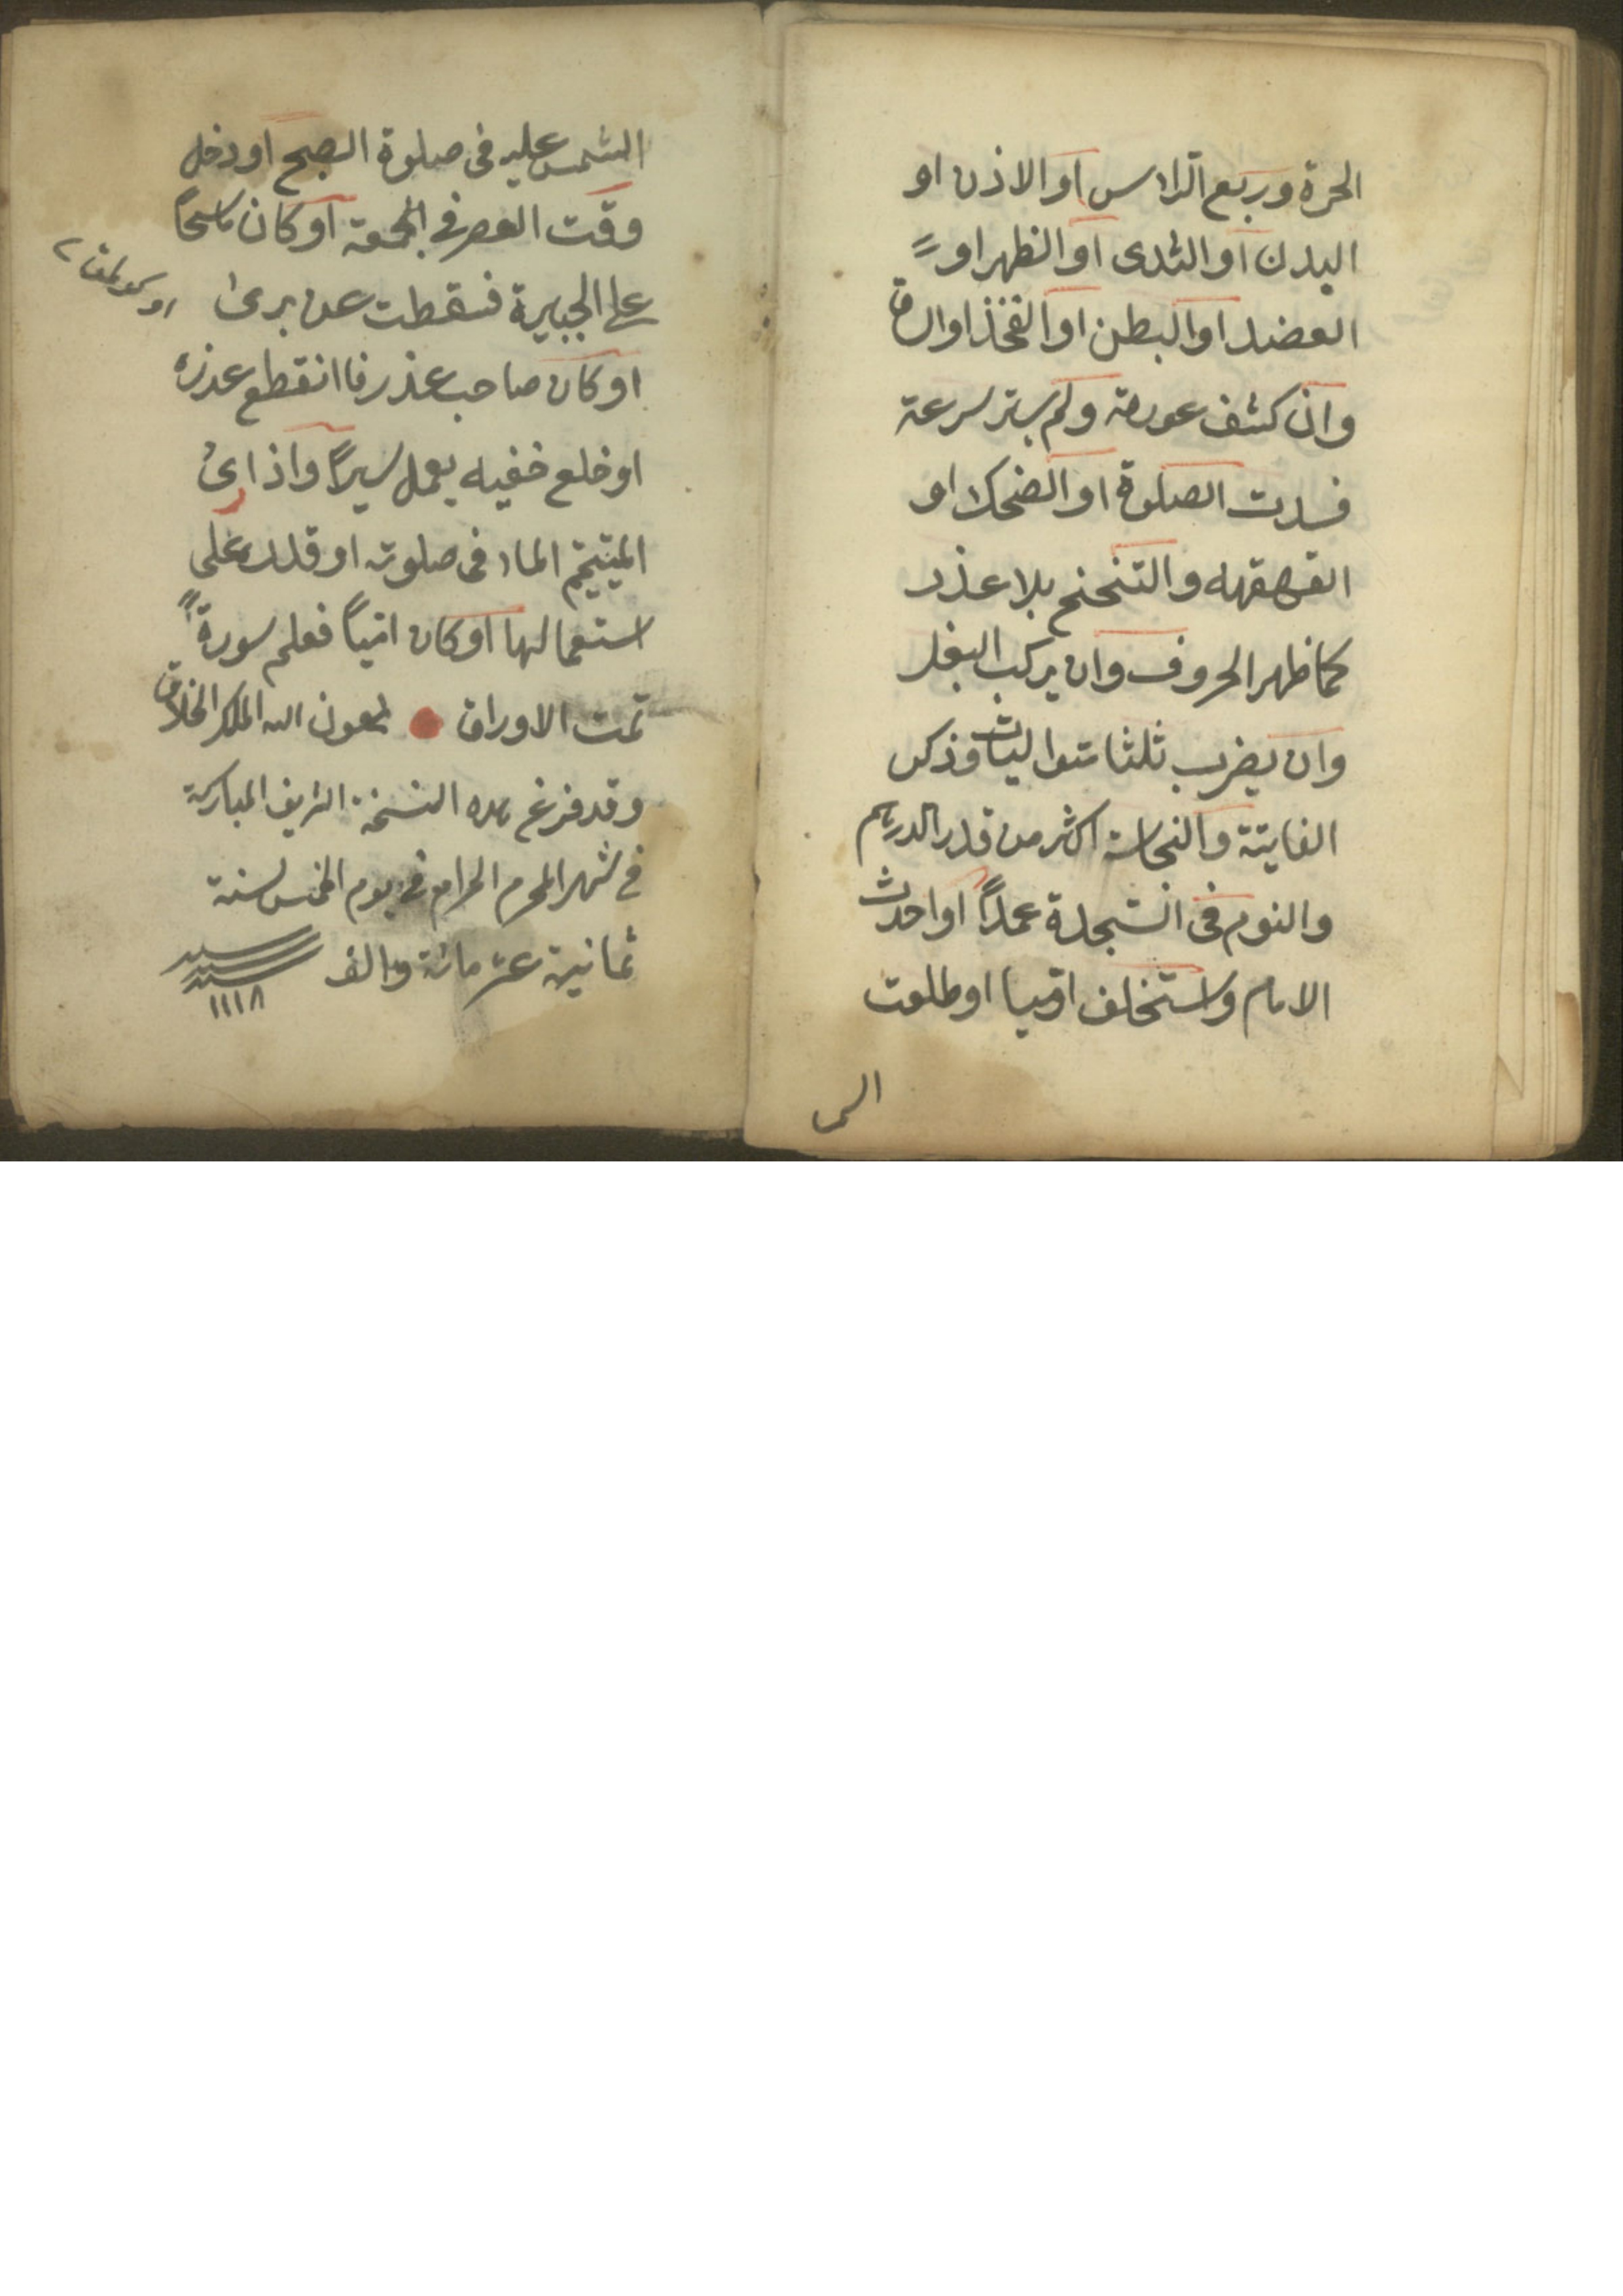 الحرة وربع الراس او الاذن او
اليدن او الثدى او الظهر او
العضد او البطن او الفخذ او الساق
وان كشف عورة ولم يستر سرعة
فسدت الصلوة او الضحك او
القهقهه والتنحنح بلا عذر
كما ظهر الحروف وان يركب البغل
وان يضرب ثلثا متواليات وذكر
الفايتة والنجاسة اكثر من قدر الدرهم
والنوم فى السجدة عمداً او احدث
الامام واستخلف اميا او طلعت
الشمس عليه فى صلوة الصبح او دخل
وقت العصر فى الجمعة او كان ماسحاً
على الجبيرة فسقطت عن برئ
او كان صاحب عذر فا انقطع عذره
او خلع خفيه بعمل يسيراً واذا رئ
المتيمم الماء فى صلوته او قدر على
استعمالها او كان امياً فعلم سورةً
تمت الاوراق بعون الله الملك الخلاق
وقد فرغ هذه النسخة الشريف المباركة
فى شهر المحرم الحرام فى يوم الخمس لسنة
ثمانية عشر مائة والف
سنة
١١١٨